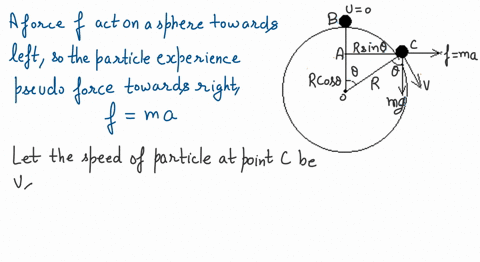 A force f act on a sphere towards
left, so the particle experience
pseudo force towards right,
f = ma
Let the speed of particle at point C be
v,
U=0
B
A
Rsinθ
C
f=ma
Rcosθ
θ
R
θ
mg
v
O